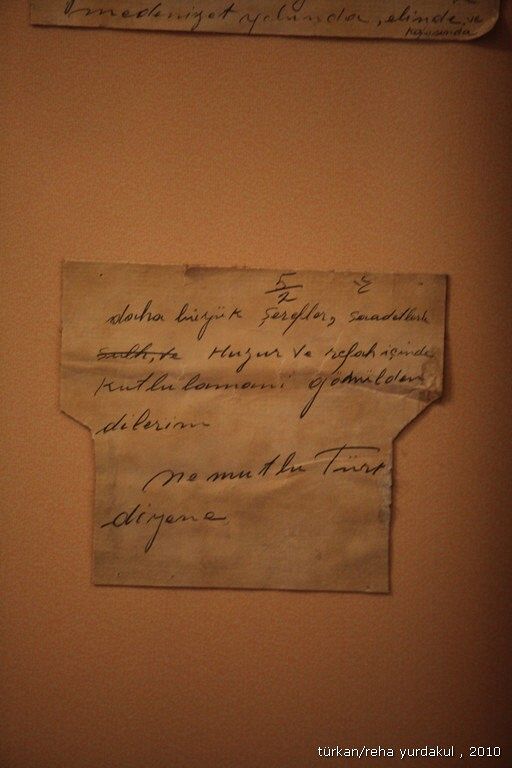 medeniyet yolunda, elinde, ve
kafasında
5/2
daha büyük şerefler, saadetlerle
sulh, ve Huzur ve refah içinde
kutlulamanı gönülden
dilerim
ne mutlu Türk
diyene
türkan/reha yurdakul , 2010